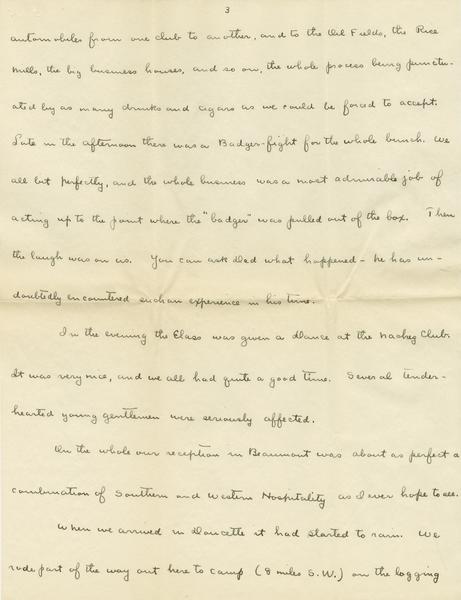 3
automobiles from one club to another, and to the Oil Fields, the Rice
Mills, the big business houses, and so on, the whole process being punctu-
ated by as many drinks and cigars as we could be forced to accept.
Late in the afternoon there was a Badger-fight for the whole bunch. We
all bit perfectly, and the whole business was a most admirable job of
acting up to the point where the "badger" was pulled out of the box. Then
the laugh was on us. You can ask Dad what happened - he has un-
doubtedly encountered such an experience in his time.
In the evening the Class was given a dance at the Club.
It was very nice, and we all had quite a good time. Several tender-
hearted young gentlemen were seriously affected.
On the whole our reception in Beaumont was about as perfect a
combination of Southern and Western Hospitality as I ever hope to see.
When we arrived in Doucette it had started to rain. We
rode part of the way out here to camp (8 miles S.W.) on the logging